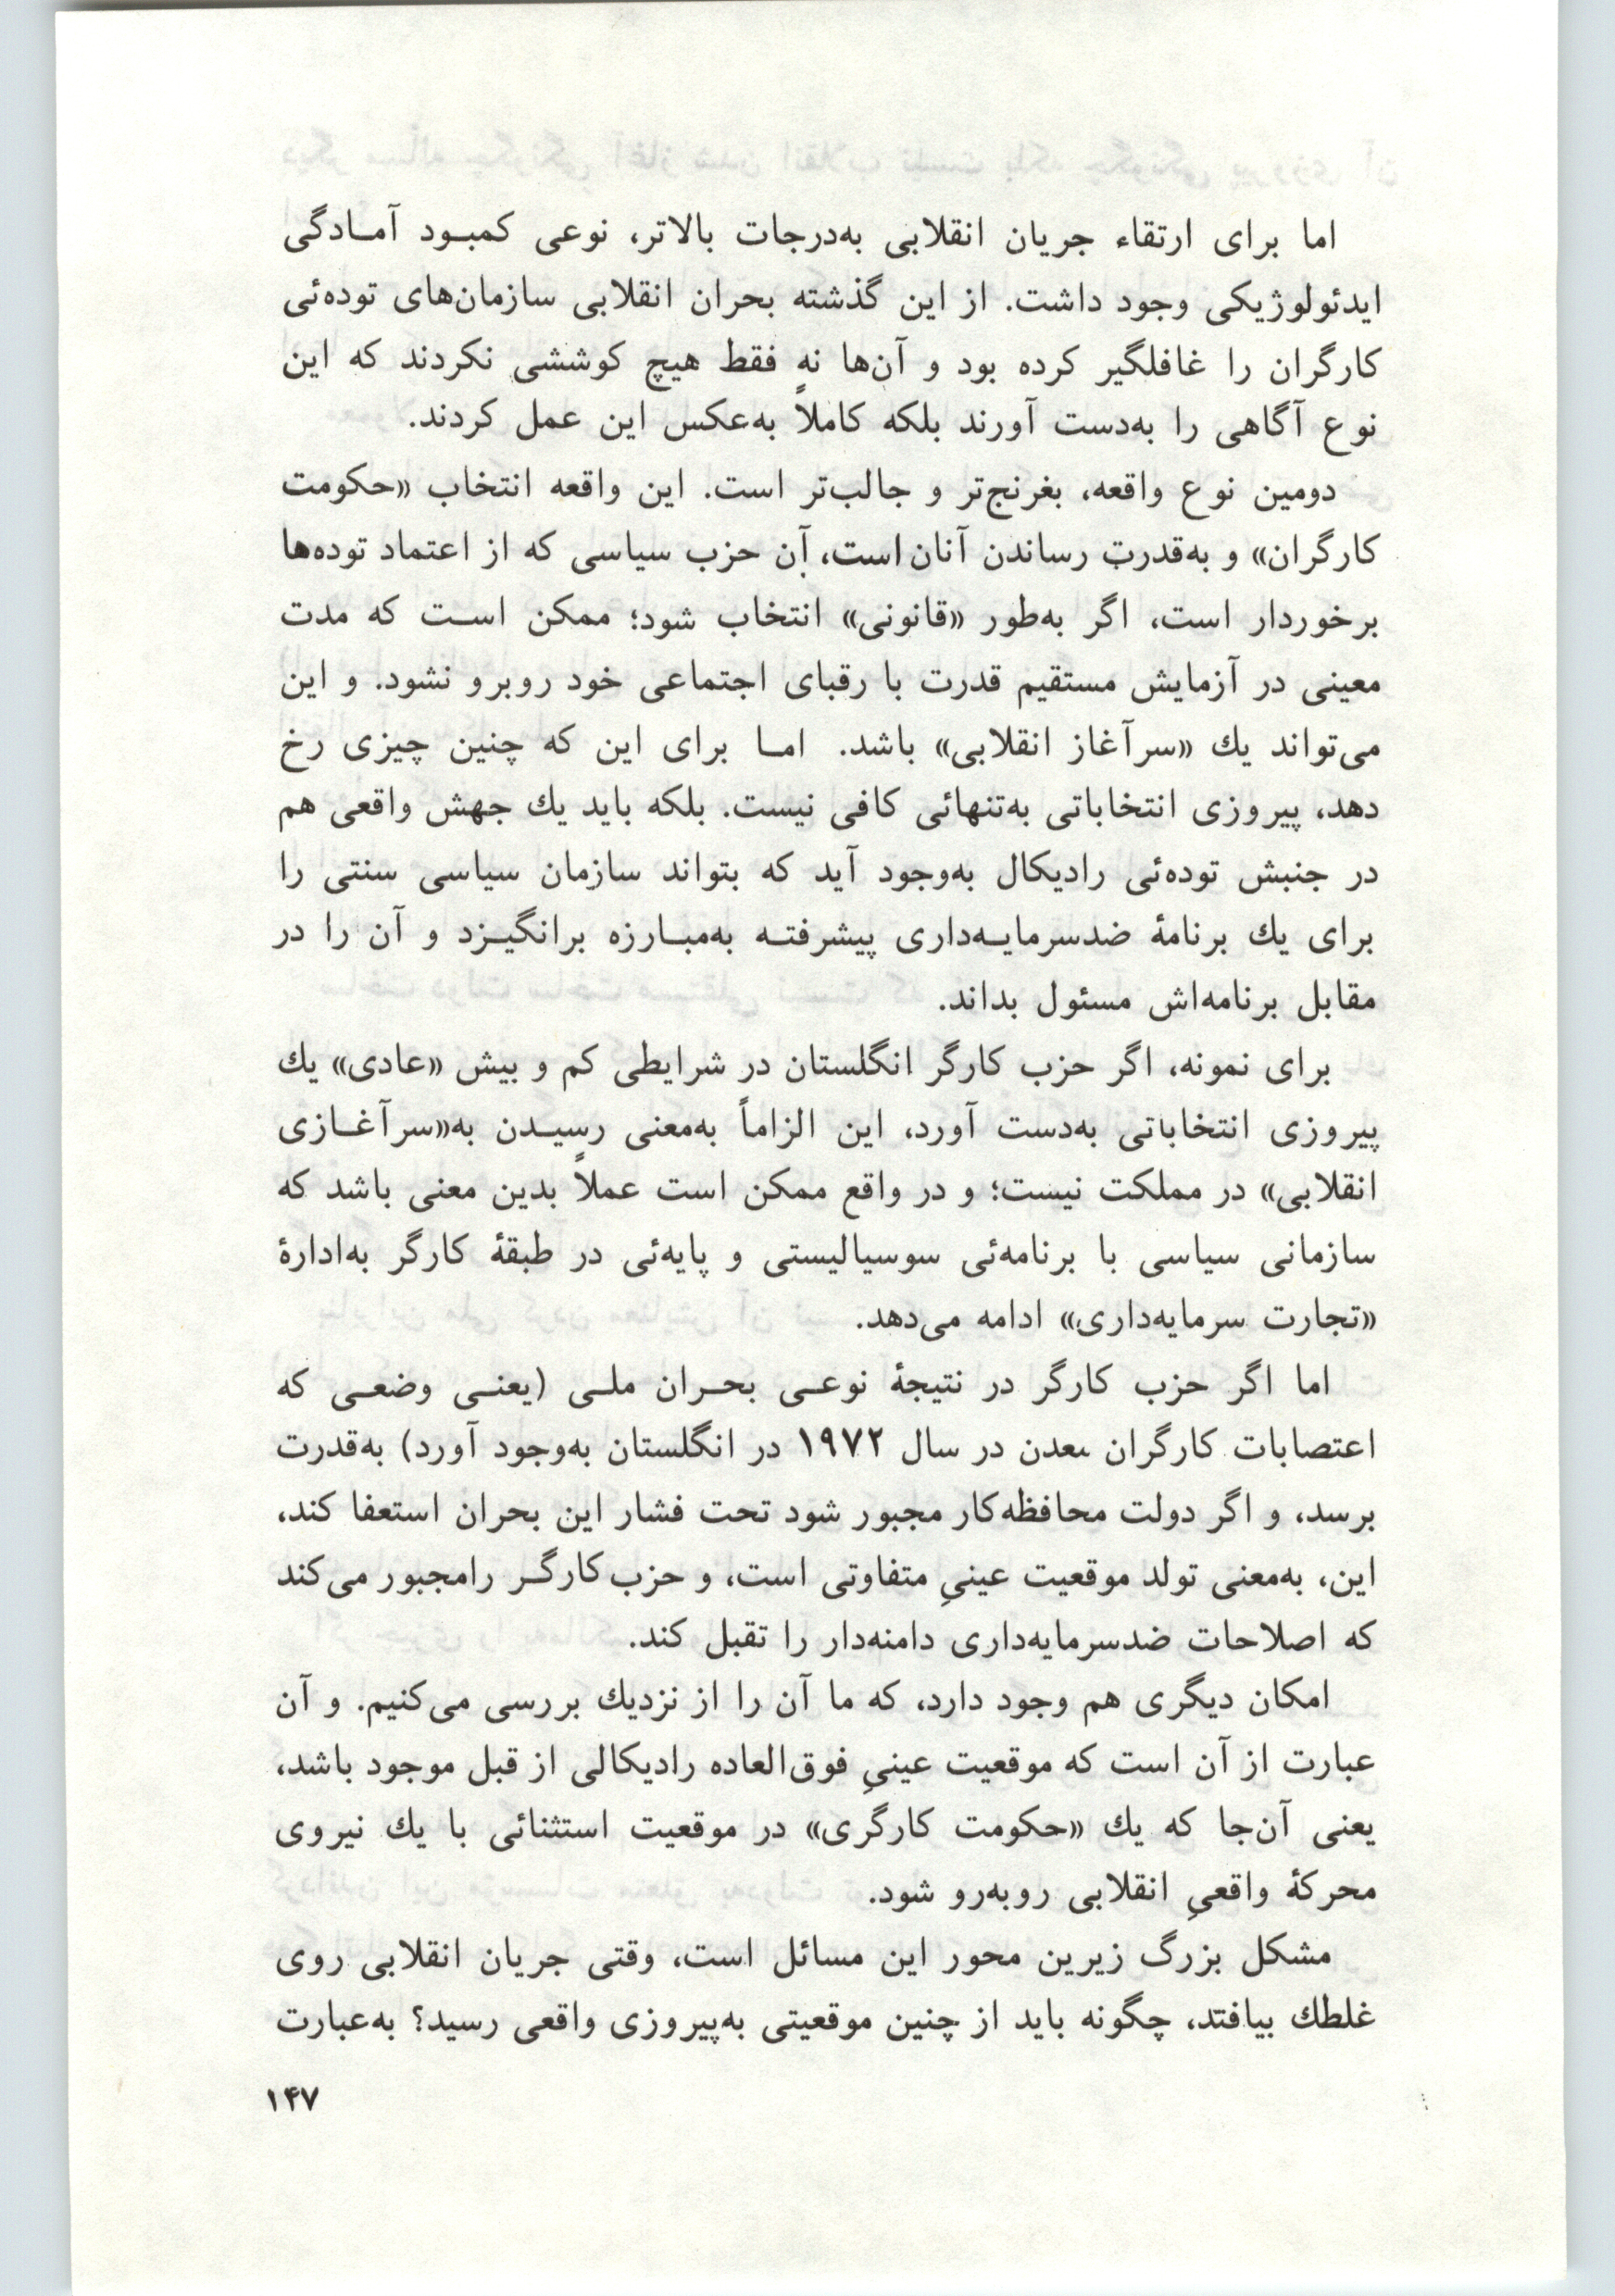 اما برای ارتقاء جریان انقلابی به‌درجات بالاتر، نوعی کمبود آمادگی
ایدئولوژیکی وجود داشت. از این گذشته بحران انقلابی سازمان‌های توده‌ئی
کارگران را غافلگیر کرده بود و آن‌ها نه فقط هیچ کوششی نکردند که این
نوع آگاهی را به‌دست آورند بلکه کاملاً به‌عکس این عمل کردند.
دومین نوع واقعه، بغرنج‌تر و جالب‌تر است. این واقعه انتخاب «حکومت
کارگران» و به‌قدرت رساندن آنان است، آن حزب سیاسی که از اعتماد توده‌ها
برخوردار است، اگر به‌طور «قانونی» انتخاب شود؛ ممکن است که مدت
معینی در آزمایش مستقیم قدرت با رقبای اجتماعی خود روبرو نشود. و این
می‌تواند یك «سرآغاز انقلابی» باشد. اما برای این که چنین چیزی رخ
دهد، پیروزی انتخاباتی به‌تنهائی کافی نیست. بلکه باید یك جهش واقعی هم
در جنبش توده‌ئی رادیکال به‌وجود آید که بتواند سازمان سیاسی سنتی را
برای یك برنامهٔ ضدسرمایه‌داری پیشرفته به‌مبارزه برانگیزد و آن را در
مقابل برنامه‌اش مسئول بداند.
برای نمونه، اگر حزب کارگر انگلستان در شرایطی کم و بیش «عادی» یك
پیروزی انتخاباتی به‌دست آورد، این الزاماً به‌معنی رسیدن به«سرآغازی
انقلابی» در مملکت نیست؛ و در واقع ممکن است عملاً بدین معنی باشد که
سازمانی سیاسی با برنامه‌ئی سوسیالیستی و پایه‌ئی در طبقهٔ کارگر به‌ادارهٔ
«تجارت سرمایه‌داری» ادامه می‌دهد.
اما اگر حزب کارگر در نتیجهٔ نوعی بحران ملی (یعنی وضعی که
اعتصابات کارگران معدن در سال ۱۹۷۲ در انگلستان به‌وجود آورد) به‌قدرت
برسد، و اگر دولت محافظه‌کار مجبور شود تحت فشار این بحران استعفا کند،
این، به‌معنی تولد موقعیت عینیِ متفاوتی است، و حزب کارگر رامجبور می‌کند
که اصلاحات ضدسرمایه‌داری دامنه‌دار را تقبل کند.
امکان دیگری هم وجود دارد، که ما آن را از نزدیك بررسی می‌کنیم. و آن
عبارت از آن است که موقعیت عینیِ فوق‌العاده رادیکالی از قبل موجود باشد،
یعنی آن‌جا که یك «حکومت کارگری» در موقعیت استثنائی با یك نیروی
محرکهٔ واقعیِ انقلابی روبه‌رو شود.
مشکل بزرگ زیرین محور این مسائل است، وقتی جریان انقلابی روی
غلطك بیافتد، چگونه باید از چنین موقعیتی به‌پیروزی واقعی رسید؟ به‌عبارت
۱۴۷